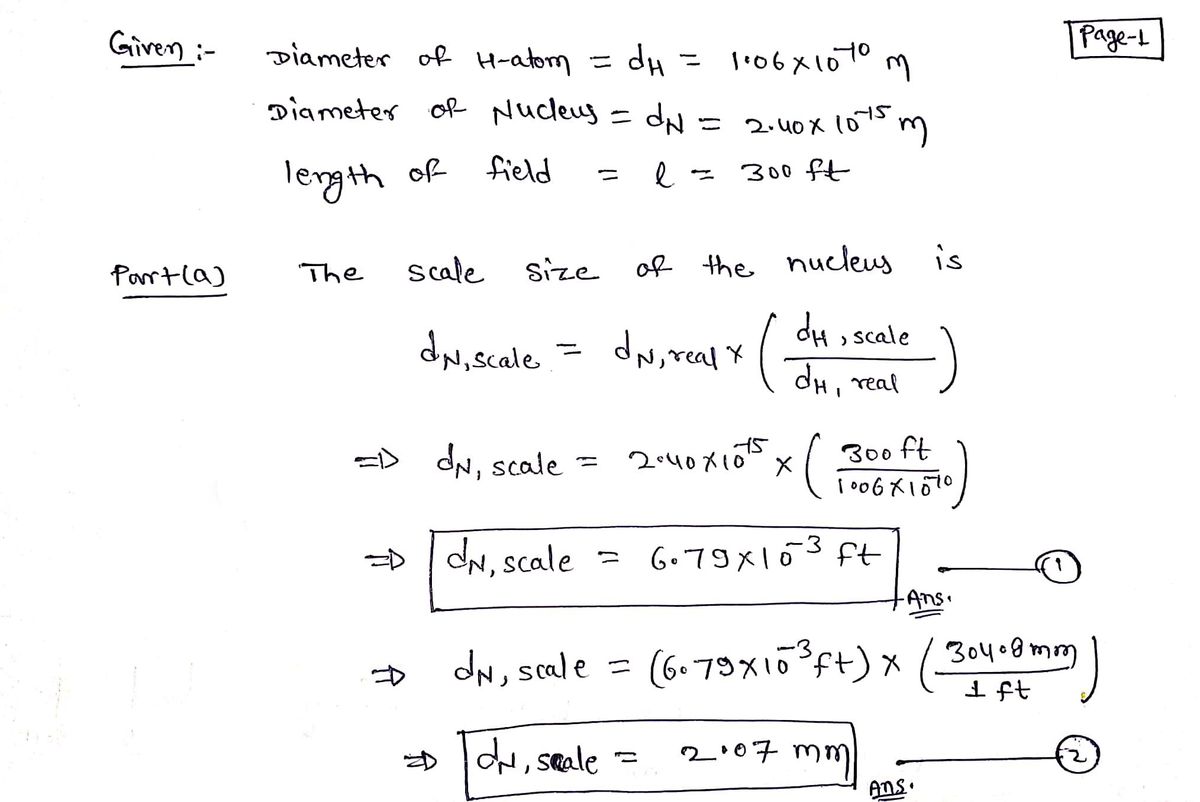 Page-1
Given :- Diameter of H-atom = dH = 1.06×10⁻¹⁰ m
Diameter of Nucleus = dN = 2.40×10⁻¹⁵ m
length of field = l = 300 ft
Part(a) The scale size of the nucleus is
dN,scale = dN,real × (dH,scale / dH,real)
⇒ dN,scale = 2.40×10⁻¹⁵ × (300 ft / 1.06×10⁻¹⁰)
⇒ dN,scale = 6.79×10⁻³ ft — ①
Ans.
⇒ dN,scale = (6.79×10⁻³ ft) × (304.8 mm / 1 ft)
⇒ dN,scale = 2.07 mm — ②
Ans.